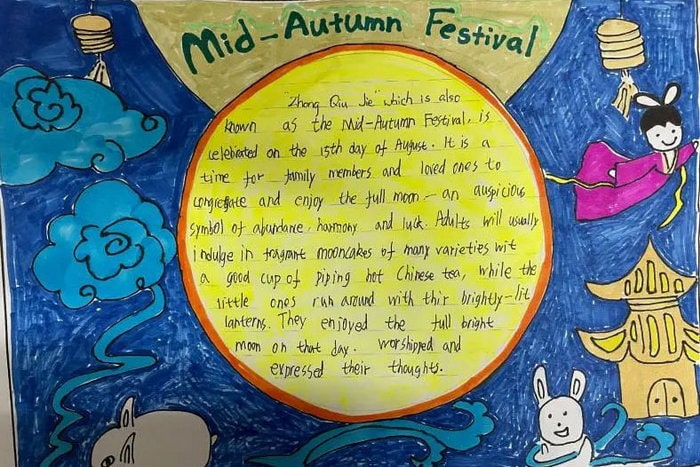 Mid-Autumn Festival
"Zhong Qiu Jie" which is also
known as the Mid-Autumn Festival, is
celebrated on the 15th day of August. It is a
time for family members and loved ones to
congregate and enjoy the full moon - an auspicious
symbol of abundance, harmony and luck. Adults will usually
indulge in fragrant mooncakes of many varieties wit
a good cup of piping hot Chinese tea, while the
little ones run around with thir brightly-lit
lanterns. They enjoyed the full bright
moon on that day. worshipped and
expressed their thoughts.